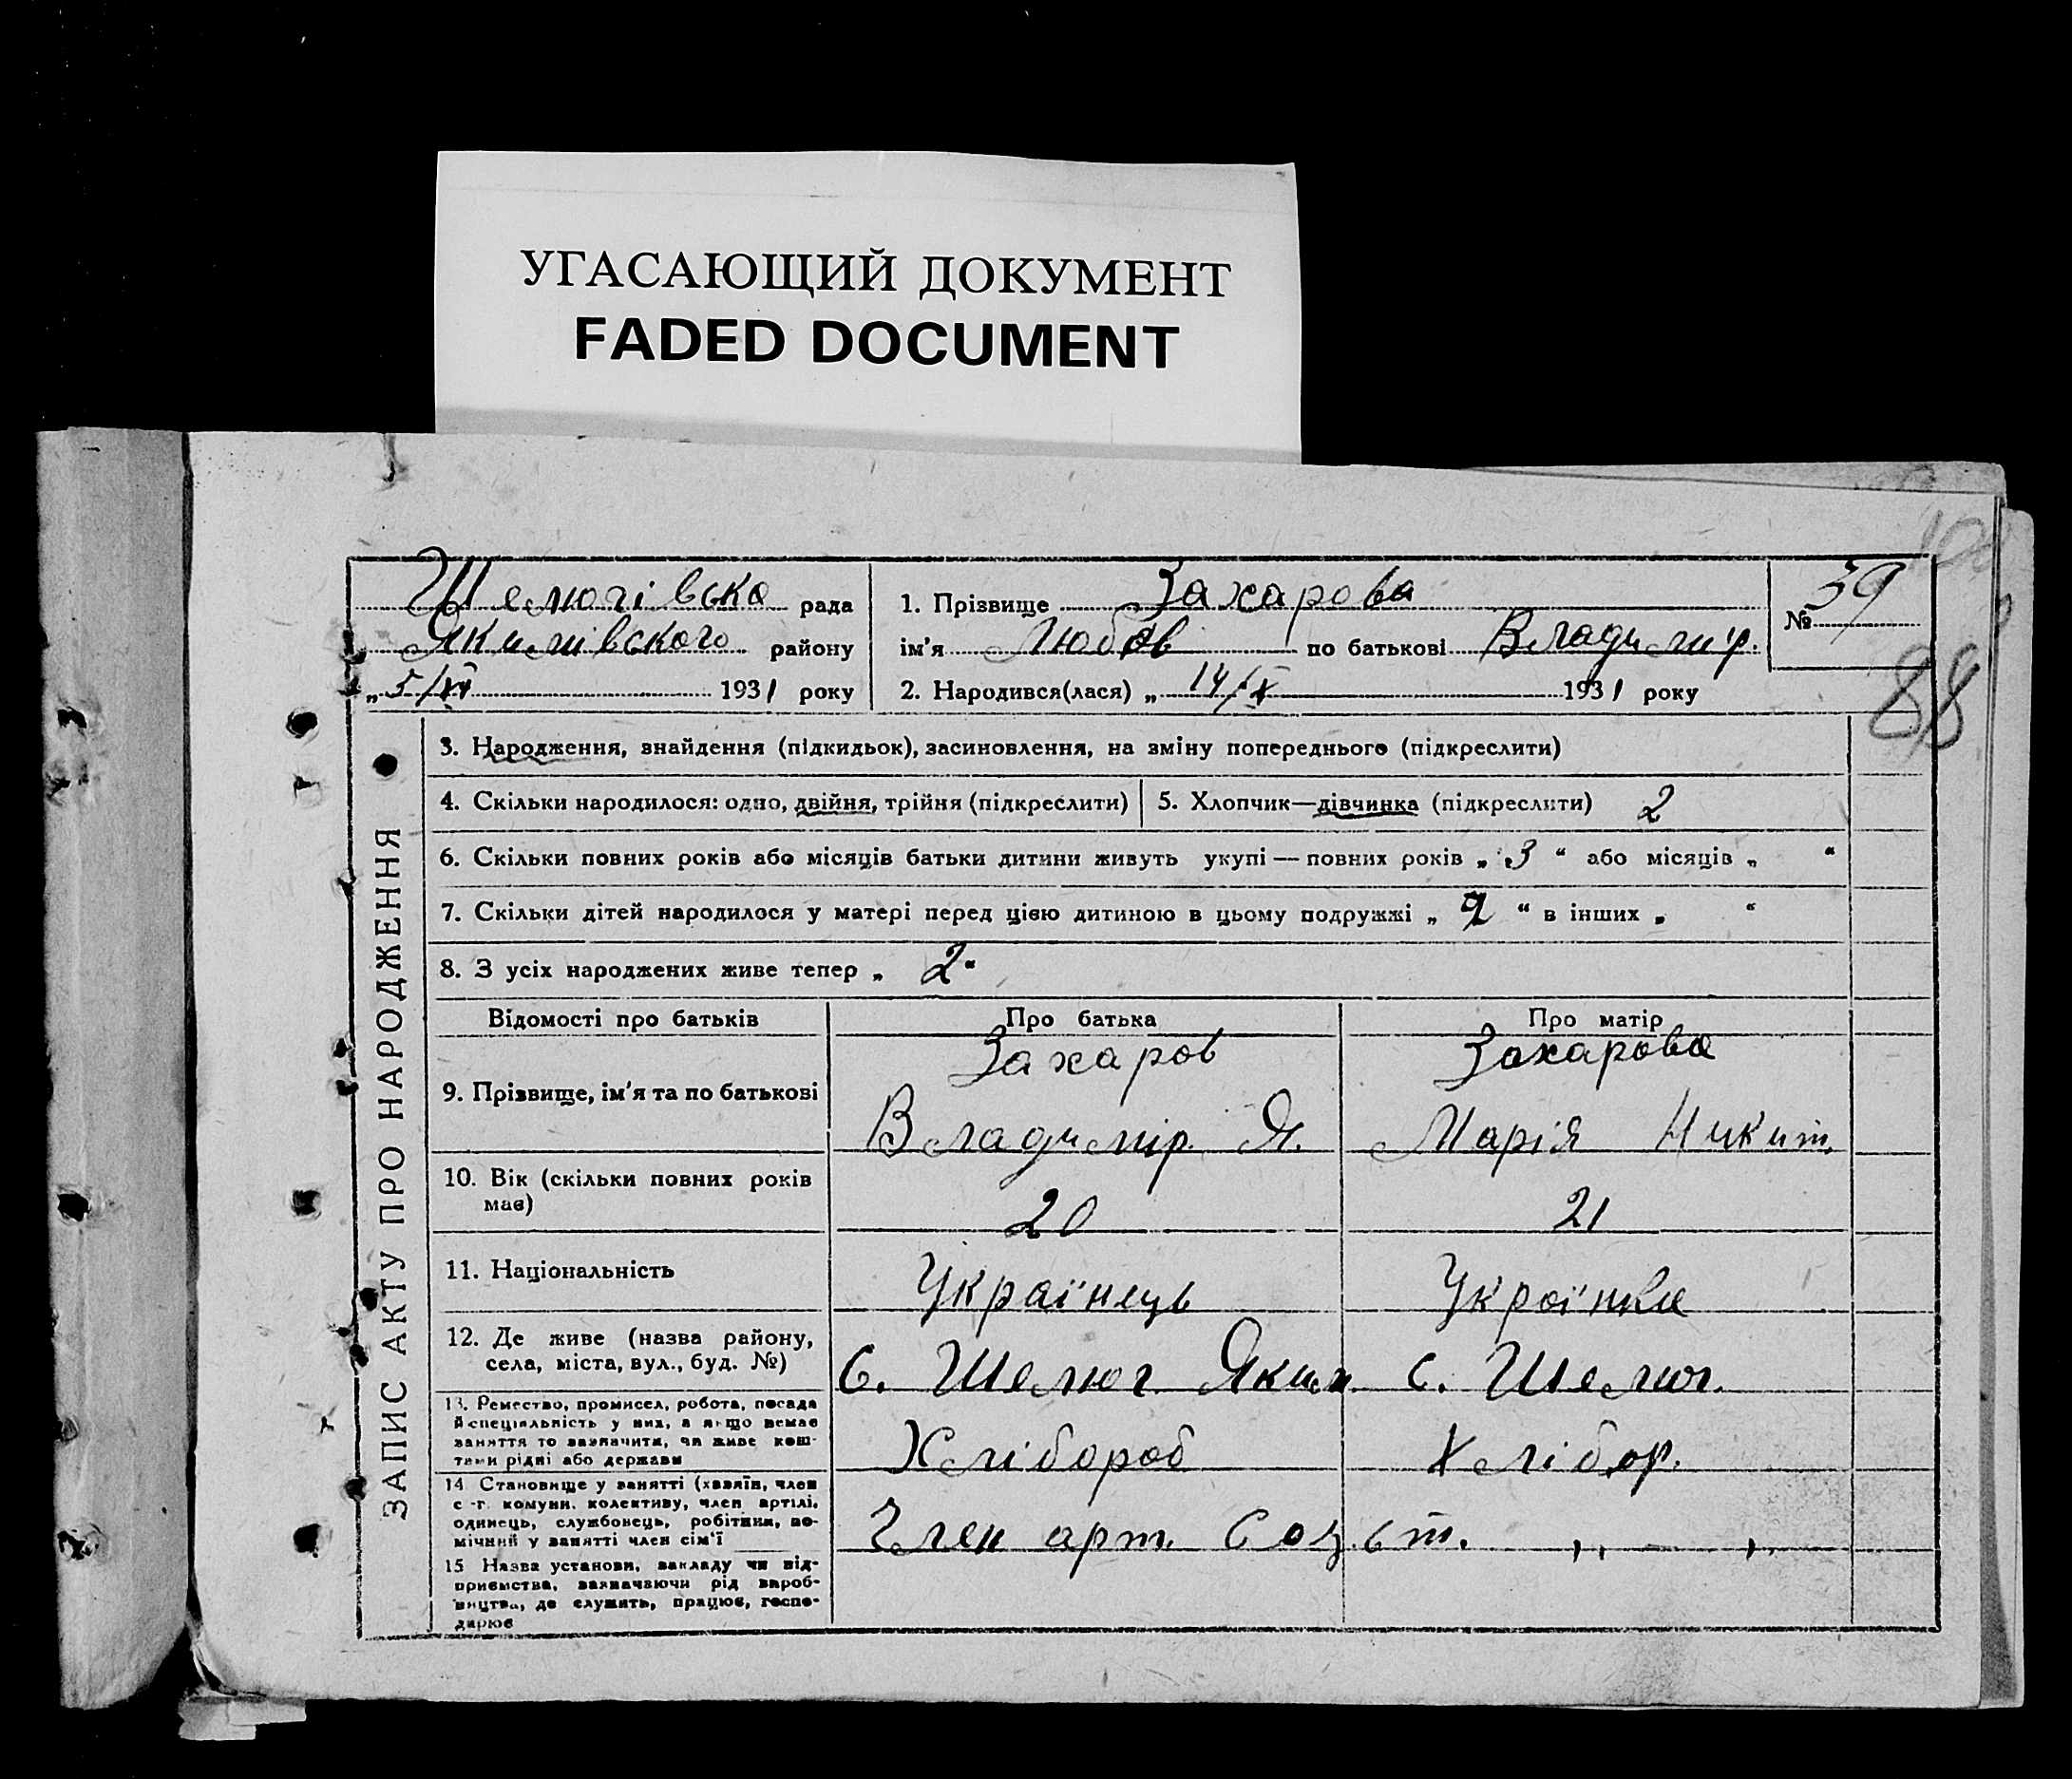 УГАСАЮЩИЙ ДОКУМЕНТ
FADED DOCUMENT
Шелюгівска рада
Якимівського району
„5/XI 1931 року
1. Прізвище Захарова
ім'я Любов по батькові Владимір.
2. Народився(лася) „ 14/X 1931 року
№ 39
88
ЗАПИС АКТУ ПРО НАРОДЖЕННЯ
3. Народження, знайдення (підкидьок), засиновлення, на зміну попереднього (підкреслити)
4. Скільки народилося: одно, двійня, трійня (підкреслити)
5. Хлопчик—дівчинка (підкреслити) 2
6. Скільки повних років або місяців батьки дитини живуть укупі — повних років „ 3 “ або місяців „ “
7. Скільки дітей народилося у матері перед цією дитиною в цьому подружжі „ “ в інших „ “
8. З усіх народжених живе тепер „ 2 “
Відомості про батьків Про батька Про матір
9. Прізвище, ім'я та по батькові
Захаров
Владимір Я.
Захарова
Марія Никит.
10. Вік (скільки повних років
має)
20 21
11. Національність Українець Українка
12. Де живе (назва району,
села, міста, вул., буд. №)
С. Шелюг. Яким. с. Шелюг.
13. Ремество, промисел, робота, посада
й спеціяльність у них, а якщо немає
заняття то зазначити, чи живе кош-
тами рідні або держави
Хлібороб Хлібор.
14 Становище у занятті (хазяїн, член
с.-г. комуни, колективу, член артілі,
одинець, службовець, робітник, по-
мічний у занятті член сім'ї
Член арт. Соз. ст. „ — „
15 Назва установи, закладу чи під-
приємства, зазначаючи рід вироб-
ництва, де служить, працює, госпо-
дарює